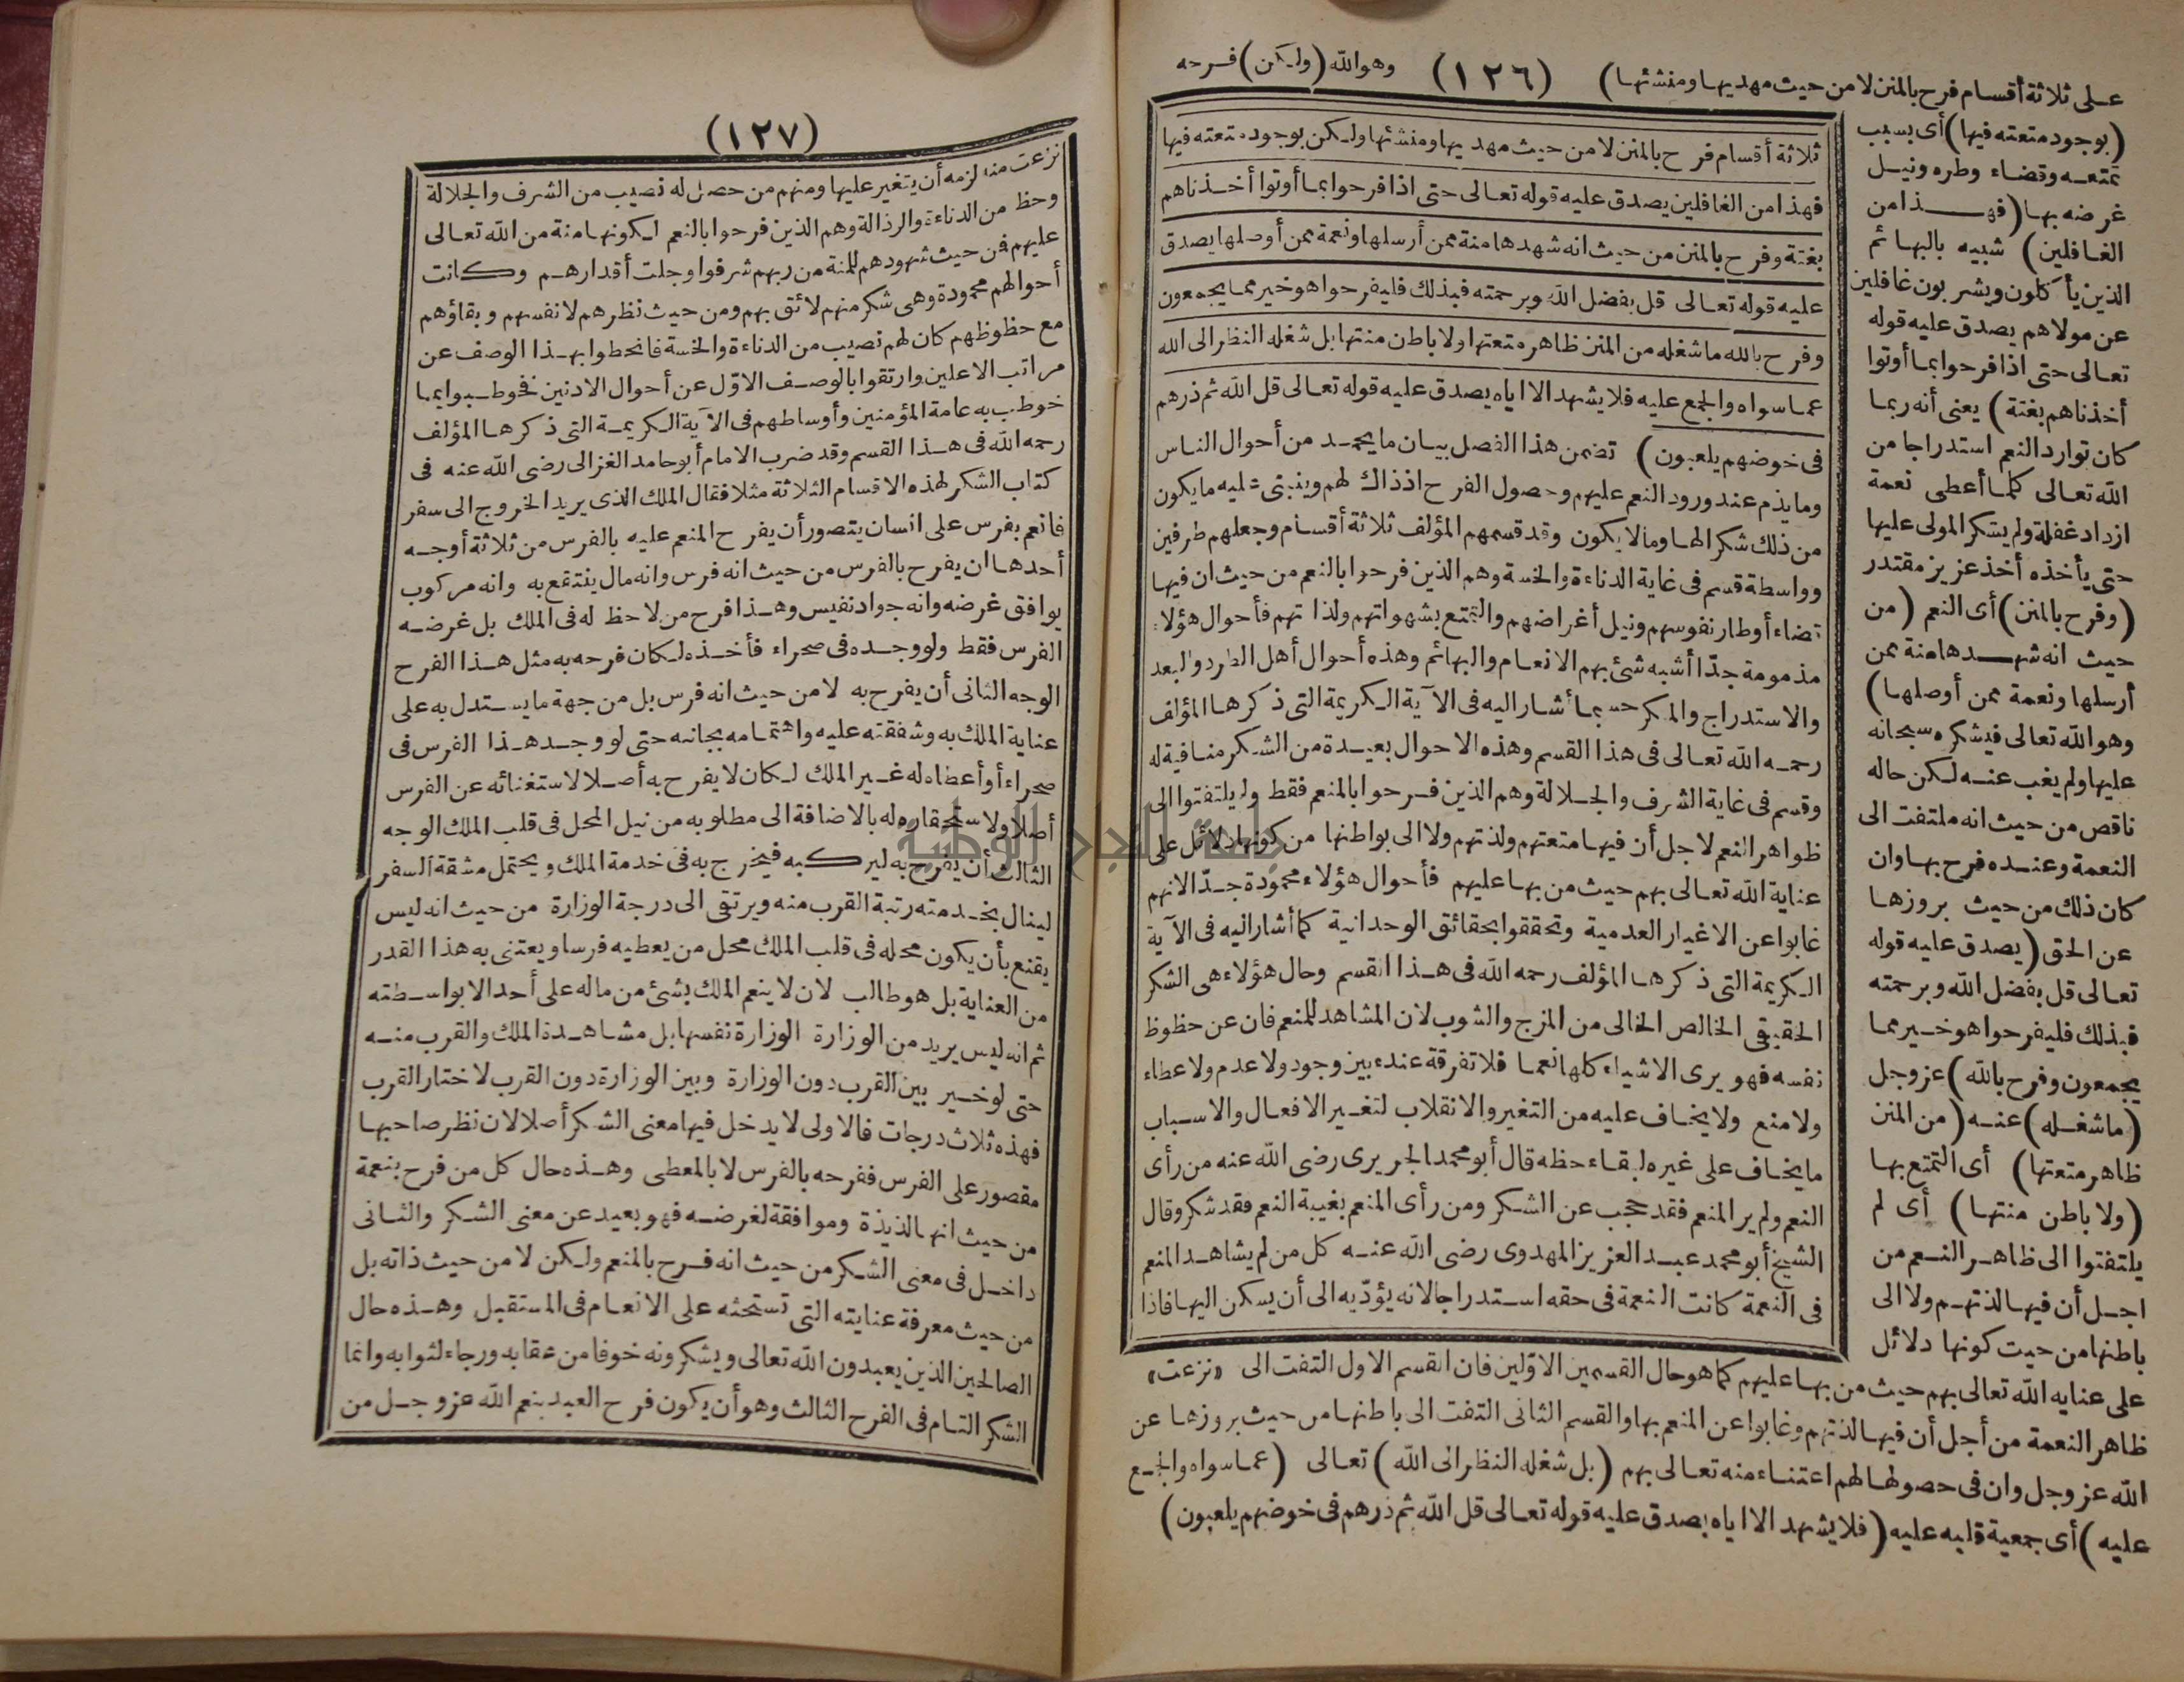 على ثلاثة أقسام فرح بالمنن لا من حيث مهديها ومنشئها) (١٢٦) وهو الله (ولكن) فرحه
(بوجود متعته فيها) أى بسبب
تمتعه وقضاء وطره ونيل
غرضه بها (فهذا من
الغافلين) شبيه بالبهائم
الذين يأكلون ويشربون غافلين
عن مولاهم يصدق عليه قوله
تعالى حتى اذا فرحوا بما أوتوا
أخذناهم بغتة) يعنى أنه ربما
كان توارد النعم استدراجا من
الله تعالى كلما أعطى نعمة
ازداد غفلة ولم يشكر المولى عليها
حتى يأخذه أخذ عزيز مقتدر
(وفرح بالمنن) أى النعم (من
حيث انه شهدها منة ممن
أرسلها ونعمة ممن أوصلها)
وهو الله تعالى فيشكره سبحانه
عليها ولم يغب عنه لكن حاله
ناقص من حيث انه ملتفت الى
النعمة وعنده فرح بها وان
كان ذلك من حيث بروزها
عن الحق (يصدق عليه قوله
تعالى قل بفضل الله وبرحمته
فبذلك فليفرحوا هو خير مما
يجمعون وفرح بالله) عز وجل
(ما شغله) عنه (من المنن
ظاهر متعتها) أى التمتع بها
(ولا باطن منتها) أى لم
يلتفتوا الى ظاهر النعم من
اجل أن فيها لذتهم ولا الى
باطنها من حيث كونها دلائل
على عناية الله تعالى بهم حيث من بها عليهم كما هو حال القسمين الاولين فان القسم الاول التفت الى «نزعت»
ظاهر النعمة من أجل أن فيها لذتهم وغابوا عن المنعم بها والقسم الثانى التفت الى باطنها من حيث بروزها عن
الله عز وجل وان فى حصولها لهم اعتناء منه تعالى بهم (بل شغله النظر الى الله) تعالى (عما سواه والجمع
عليه) أى جمعية قلبه عليه (فلا يشهد الا اياه يصدق عليه قوله تعالى قل الله ثم ذرهم فى خوضهم يلعبون)
ثلاثة أقسام فرح بالمنن لا من حيث مهديها ومنشئها ولكن بوجود متعته فيها
فهذا من الغافلين يصدق عليه قوله تعالى حتى اذا فرحوا بما أوتوا أخذناهم
بغتة وفرح بالمنن من حيث انه شهدها منة ممن أرسلها ونعمة ممن أوصلها يصدق
عليه قوله تعالى قل بفضل الله وبرحمته فبذلك فليفرحوا هو خير مما يجمعون
وفرح بالله ما شغله من المنن ظاهر متعتها ولا باطن منتها بل شغله النظر الى الله
عما سواه والجمع عليه فلا يشهد الا اياه يصدق عليه قوله تعالى قل الله ثم ذرهم
فى خوضهم يلعبون) تضمن هذا الفصل بيان ما يحمد من أحوال الناس
وما يذم عند ورود النعم عليهم وحصول الفرح اذ ذاك لهم وينبنى عليه ما يكون
من ذلك شكر الها وما لا يكون وقد قسمهم المؤلف ثلاثة أقسام وجعلهم طرفين
وواسطة قسم فى غاية الدناءة والخسة وهم الذين فرحوا بالنعم من حيث ان فيها
قضاء أوطار نفوسهم ونيل أغراضهم والتمتع بشهواتهم ولذاتهم فأحوال هؤلاء
مذمومة جدّا أشبه شئ بهم الانعام والبهائم وهذه أحوال أهل الطرد والبعد
والاستدراج والمكر حسبما أشار اليه فى الآية الكريمة التى ذكرها المؤلف
رحمه الله تعالى فى هذا القسم وهذه الاحوال بعيدة من الشكر منافية له
وقسم فى غاية الشرف والجلالة وهم الذين فرحوا بالمنعم فقط ولم يلتفتوا الى
ظواهر النعم لاجل أن فيها متعتهم ولذتهم ولا الى بواطنها من كونها دلائل على
عناية الله تعالى بهم حيث من بها عليهم فأحوال هؤلاء محمودة جدّا لانهم
غابوا عن الاغيار العدمية وتحققوا بحقائق الوحدانية كما أشار اليه فى الآية
الكريمة التى ذكرها المؤلف رحمه الله فى هذا القسم وحال هؤلاء هى الشكر
الحقيقى الخالص الخالى من المزج والشوب لان المشاهد للمنعم فان عن حظوظ
نفسه فهو يرى الاشياء كلها نعما فلا تفرقة عنده بين وجود ولا عدم ولا عطاء
ولا منع ولا يخاف عليه من التغير والانقلاب لتغير الافعال والاسباب
ما يخاف على غيره لبقاء حظه قال أبو محمد الجريرى رضى الله عنه من رأى
النعم ولم ير المنعم فقد حجب عن الشكر ومن رأى المنعم بغيبة النعم فقد شكر وقال
الشيخ أبو محمد عبد العزيز المهدوى رضى الله عنه كل من لم يشاهد المنعم
فى النعمة كانت النعمة فى حقه استدراجا لانه يؤدّيه الى أن يسكن اليها فاذا
(١٢٧)
نزعت منه لزمه أن يتغير عليها ومنهم من حصل له نصيب من الشرف والجلالة
وحظ من الدناءة والرذالة وهم الذين فرحوا بالنعم لكونها منة من الله تعالى
عليهم فمن حيث شهودهم للمنة من ربهم شرفوا وجلت أقدارهم وكانت
أحوالهم محمودة وهى شكر منهم لائق بهم ومن حيث نظرهم لانفسهم وبقاؤهم
مع حظوظهم كان لهم نصيب من الدناءة والخسة فانحطوا بهذا الوصف عن
مراتب الاعلين وارتقوا بالوصف الاوّل عن أحوال الادنين فخوطبوا بما
خوطب به عامة المؤمنين وأوساطهم فى الآية الكريمة التى ذكرها المؤلف
رحمه الله فى هذا القسم وقد ضرب الامام أبو حامد الغزالى رضى الله عنه فى
كتاب الشكر لهذه الاقسام الثلاثة مثلا فقال الملك الذى يريد الخروج الى سفر
فانعم بفرس على انسان يتصور أن يفرح المنعم عليه بالفرس من ثلاثة أوجه
أحدها ان يفرح بالفرس من حيث انه فرس وانه مال ينتفع به وانه مركوب
يوافق غرضه وانه جواد نفيس وهذا فرح من لا حظ له فى الملك بل غرضه
الفرس فقط ولو وجده فى صحراء فأخذه لكان فرحه به مثل هذا الفرح
الوجه الثانى أن يفرح به لا من حيث انه فرس بل من جهة ما يستدل به على
عناية الملك به وشفقته عليه واهتمامه بجانبه حتى لو وجد هذا الفرس فى
صحراء أو أعطاه له غير الملك لكان لا يفرح به أصلا لاستغنائه عن الفرس
أصلا ولاستحقاره له بالاضافة الى مطلوبه من نيل المحل فى قلب الملك الوجه
الثالث أن يفرح به ليركبه فيخرج به فى خدمة الملك ويحتمل مشقة السفر
لينال بخدمته رتبة القرب منه ويرتقى الى درجة الوزارة من حيث انه ليس
يقنع بأن يكون محله فى قلب الملك محل من يعطيه فرسا ويعتنى به هذا القدر
من العناية بل هو طالب لان لا ينعم الملك بشئ من ماله على أحد الا بواسطته
ثم انه ليس يريد من الوزارة الوزارة نفسها بل مشاهدة الملك والقرب منه
حتى لو خير بين القرب دون الوزارة وبين الوزارة دون القرب لاختار القرب
فهذه ثلاث درجات فالاولى لا يدخل فيها معنى الشكر أصلا لان نظر صاحبها
مقصور على الفرس ففرحه بالفرس لا بالمعطى وهذه حال كل من فرح بنعمة
من حيث انها لذيذة وموافقة لغرضه فهو بعيد عن معنى الشكر والثانى
داخل فى معنى الشكر من حيث انه فرح بالمنعم ولكن لا من حيث ذاته بل
من حيث معرفة عنايته التى تستحثه على الانعام فى المستقبل وهذه حال
الصالحين الذين يعبدون الله تعالى ويشكرونه خوفا من عقابه ورجاء لثوابه وانما
الشكر التام فى الفرح الثالث وهو أن يكون فرح العبد بنعم الله عز وجل من
جامعة النجاح الوطنية